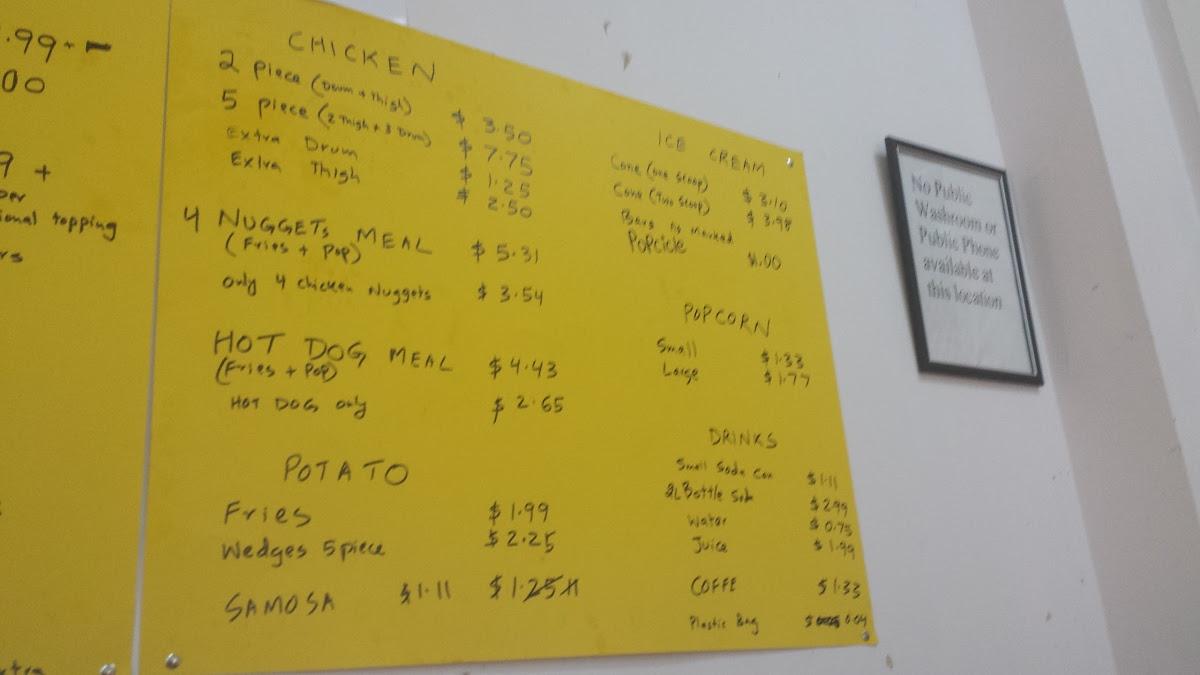 .99+-
00
9 +
per
ional topping
rs
CHICKEN
2 Piece (Drum + Thigh) $ 3.50
5 Piece (2 Thigh + 3 Drum) $ 7.75
Extra Drum $ 1.25
Extra Thigh $ 2.50
4 NUGGETS MEAL $ 5.31
(Fries + Pop)
only 4 chicken Nuggets $ 3.54
HOT DOG MEAL $ 4.43
(Fries + POP)
HOT DOG only $ 2.65
POTATO
Fries $ 1.99
Wedges 5 piece $ 2.25
SAMOSA $1.11 $ 1.25
ICE CREAM
Cone (one scoop) $ 3.10
Cone (Two Scoop) $ 3.98
Bars As Marked
Popcicle $1.00
POPCORN
Small $ 1.33
Large $ 1.77
DRINKS
Small Soda Can $ 1.11
2L Bottle Soda $ 2.99
Water $ 0.75
Juice $ 1.99
COFFE $ 1.33
Plastic Bag 0.04
No Public
Washroom or
Public Phone
available at
this location